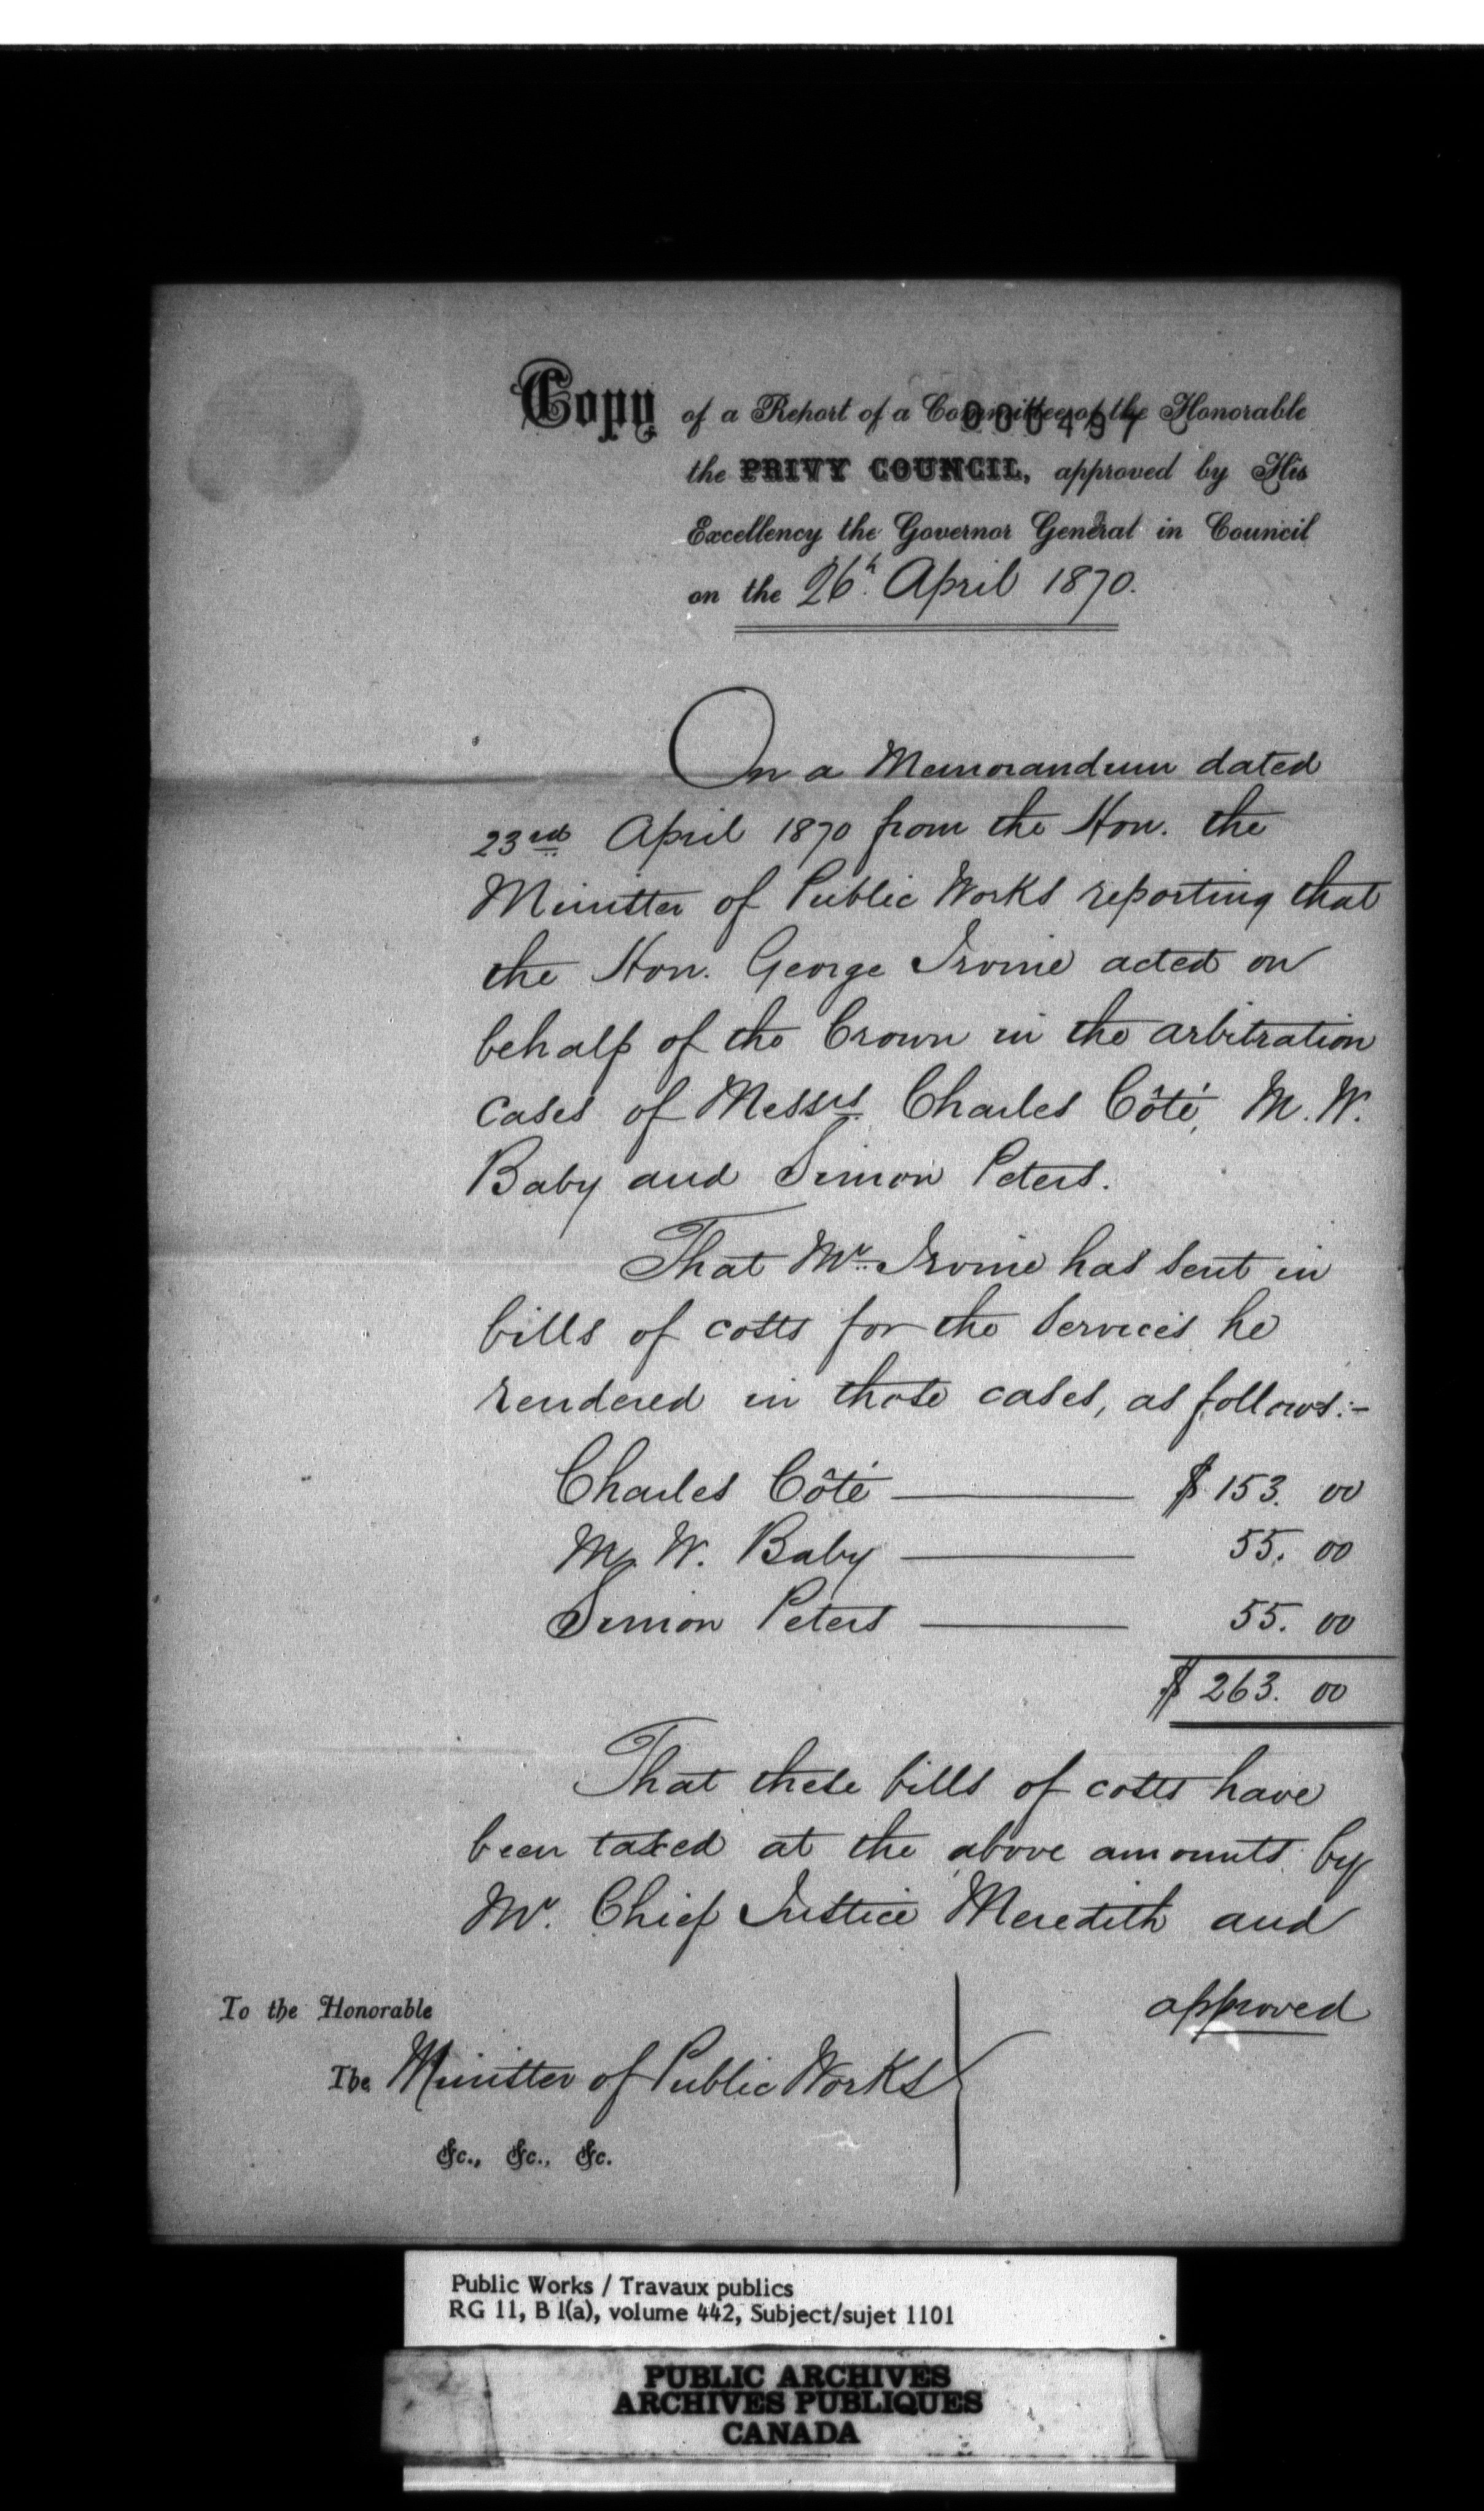 Copy of a Report of a Committee of the Honorable
000497
the PRIVY COUNCIL, approved by His
Excellency the Governor General in Council
on the 26th. April 1870.
On a Memorandum dated
23rd April 1870 from the Hon. the
Minister of Public Works reporting that
the Hon. George Irvine acted on
behalf of the Crown in the arbitration
cases of Messrs. Charles Côté, M. W.
Baby and Simon Peters.
That Mr. Irvine has sent in
bills of costs for the services he
rendered in those cases, as follows:-
Charles Côté $ 153. 00
M. W. Baby 55. 00
Simon Peters 55. 00
$ 263. 00
That these bills of costs have
been taxed at the above amounts by
Mr. Chief Justice Meredith and
approved
To the Honorable
The Minister of Public Works
&c., &c., &c.
Public Works / Travaux publics
RG 11, B 1(a), volume 442, Subject/sujet 1101
PUBLIC ARCHIVES
ARCHIVES PUBLIQUES
CANADA